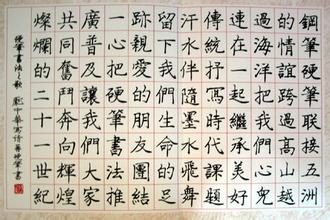 鋼筆筆接五洲
的情誼跨過高山越
過海洋把我們心兒
連在一起繼承美好
傳統抒寫時代課題
汗水伴隨墨水飛舞
留下我們生命的足
跡親愛的朋友團結
一心把硬筆書法推
廣普及讓我們大家
共同奮鬥奔向輝煌
燦爛的二十一世紀
硬筆書法之歌